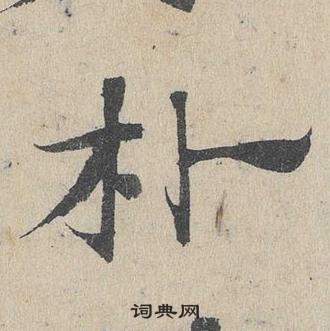 朴
词典网